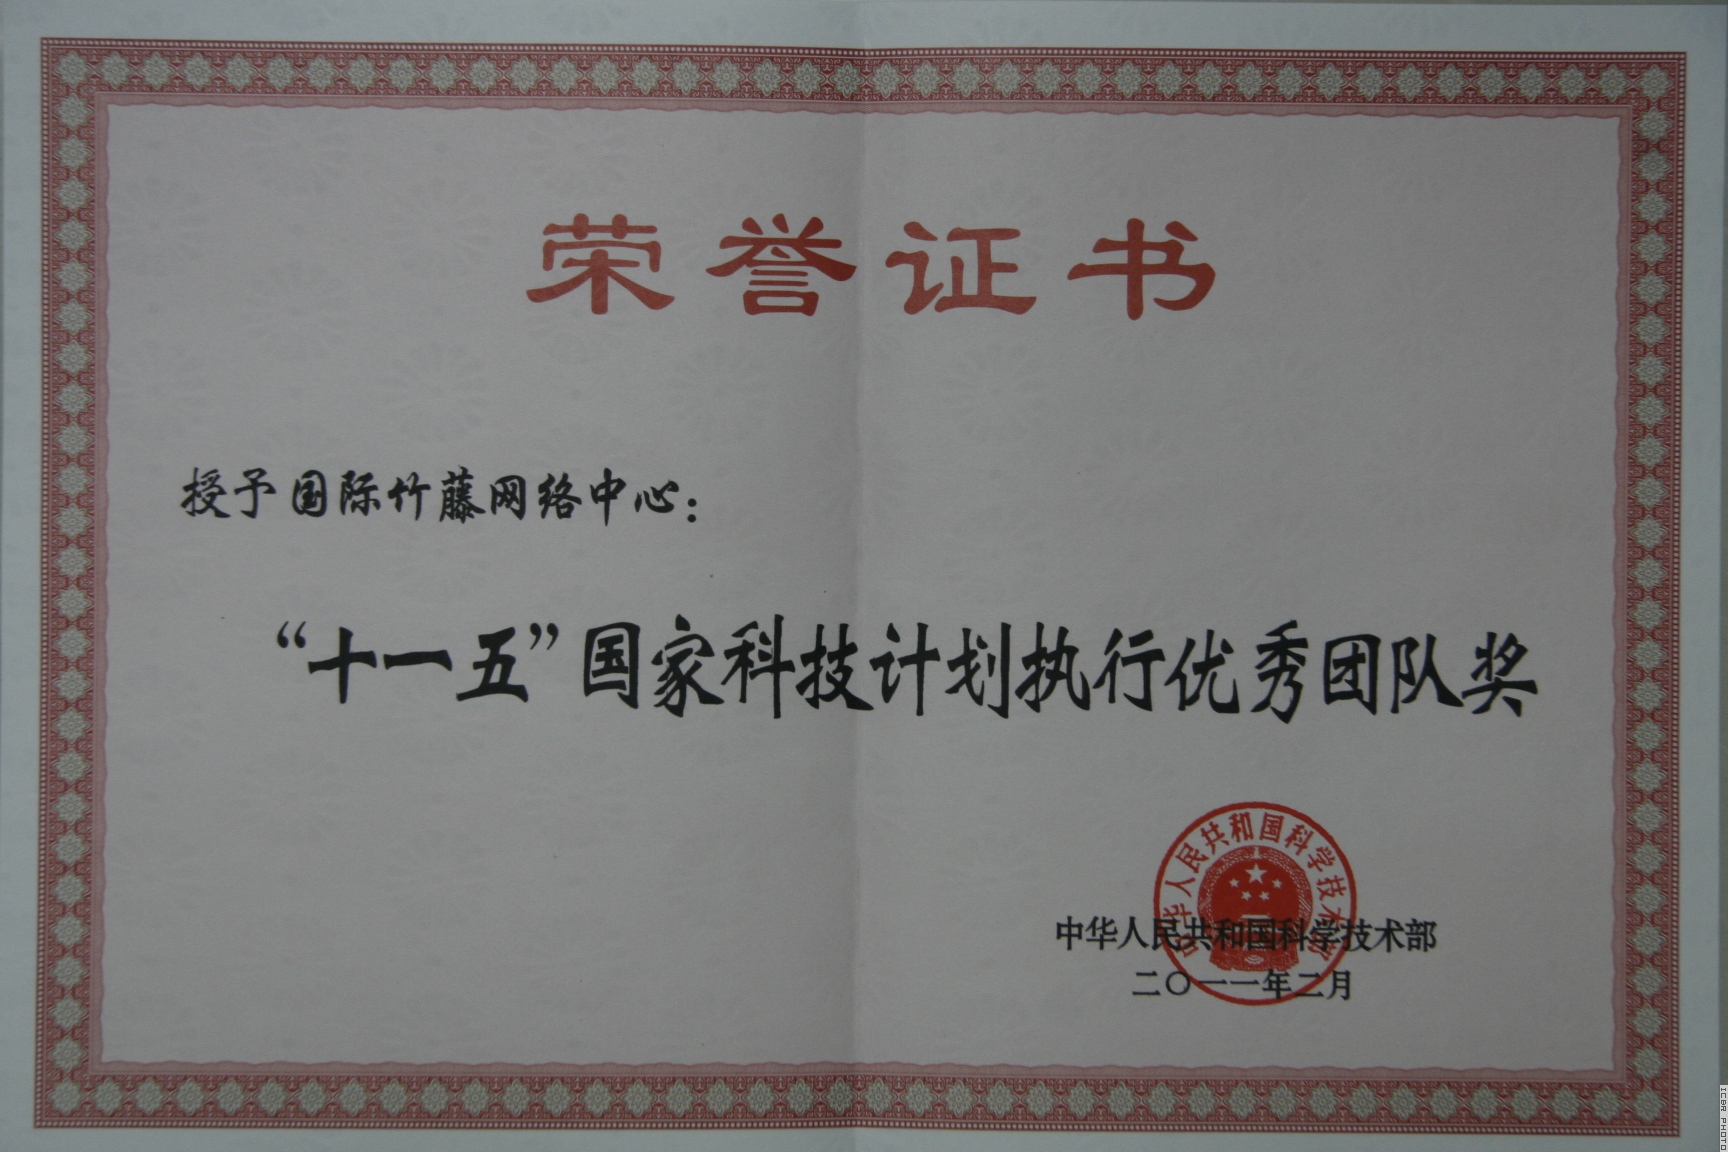 荣誉证书
授予国际竹藤网络中心：
“十一五”国家科技计划执行优秀团队奖
中华人民共和国科学技术部
中华人民共和国科学技术部
二〇一一年二月
ICBR PHOTO